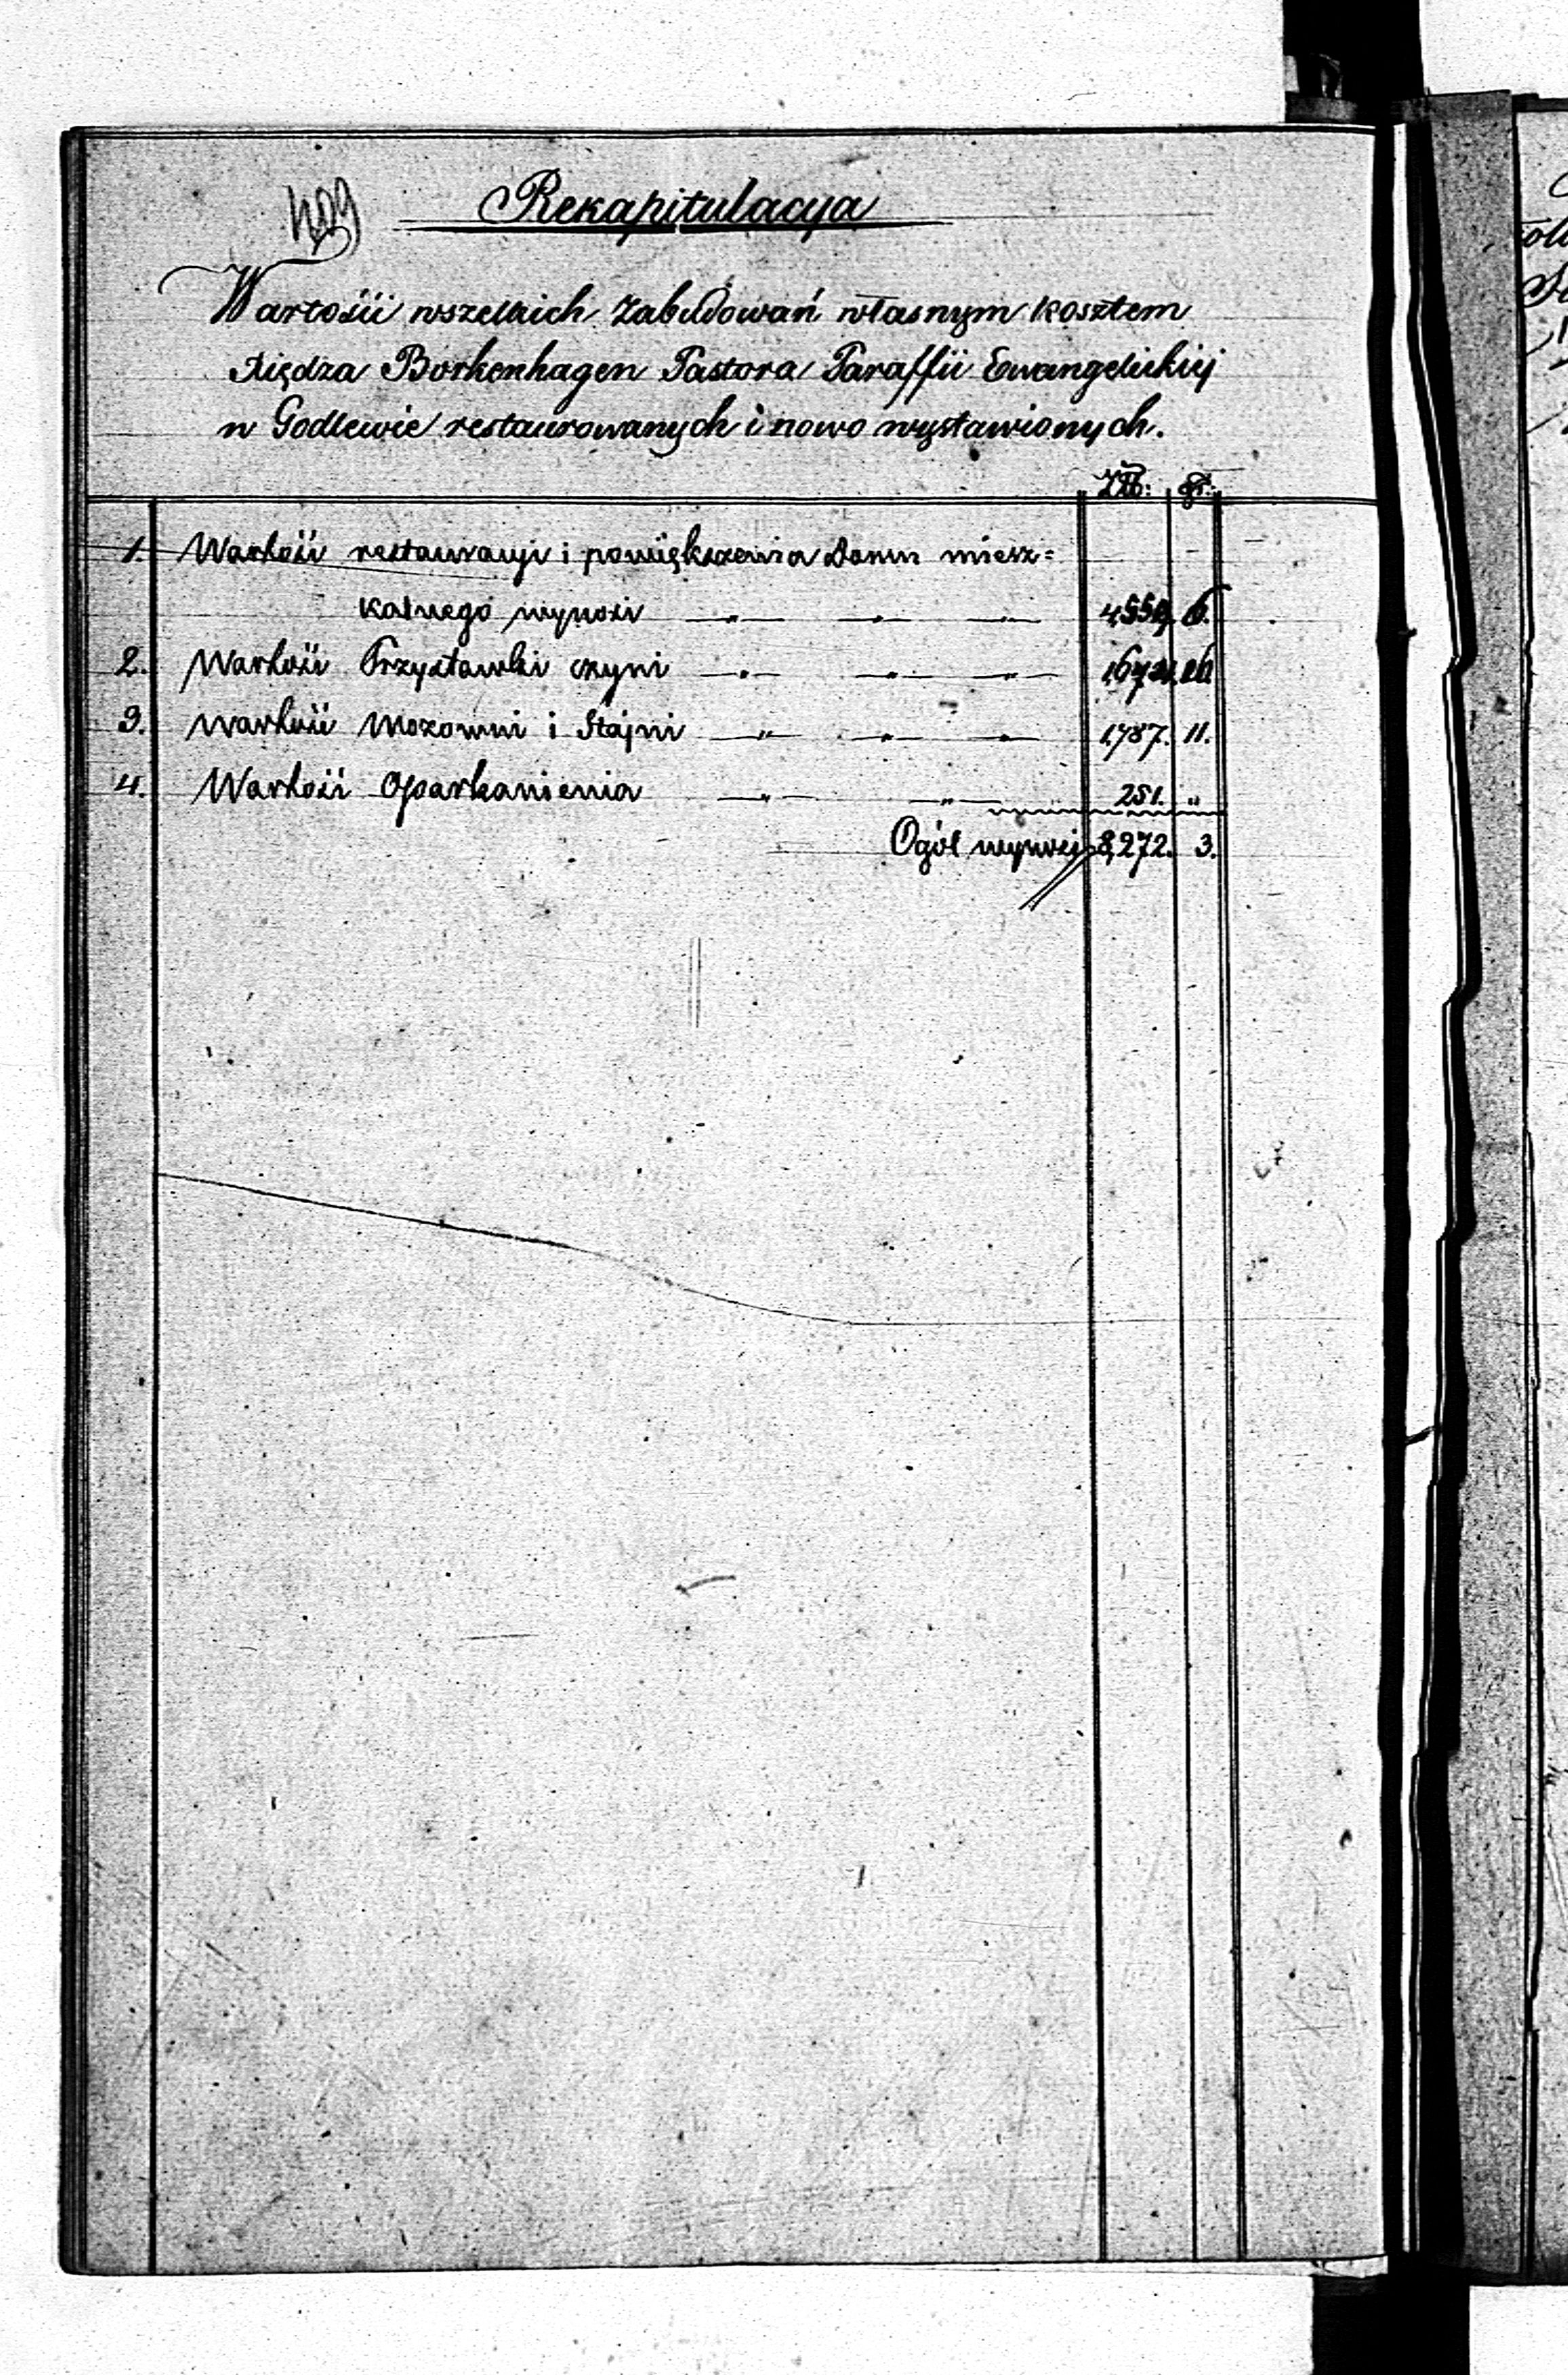 409
Rekapitulacya
Wartości wszelkich Zabudowań własnym kosztem
Xiędza Borkenhagen Pastora Paraffii Ewangelickiej
w Godlewie restaurowanych i nowo wystawionych.
Złb: gr:
1. Wartość restauracyi i powiększenia Domu miesz=
kalnego wynosi — „ — — „ — — „ — 4,559. 6.
2. Wartość Przystawki czyni — „ — — „ — — „ — 1,674. 16
3. Wartość Wozowni i Stajni — „ — — „ — — „ — 1,787. 11.
4. Wartość Oparkanienia — „ — — „ — 251. „
Ogół wynosi 8,272. 3.